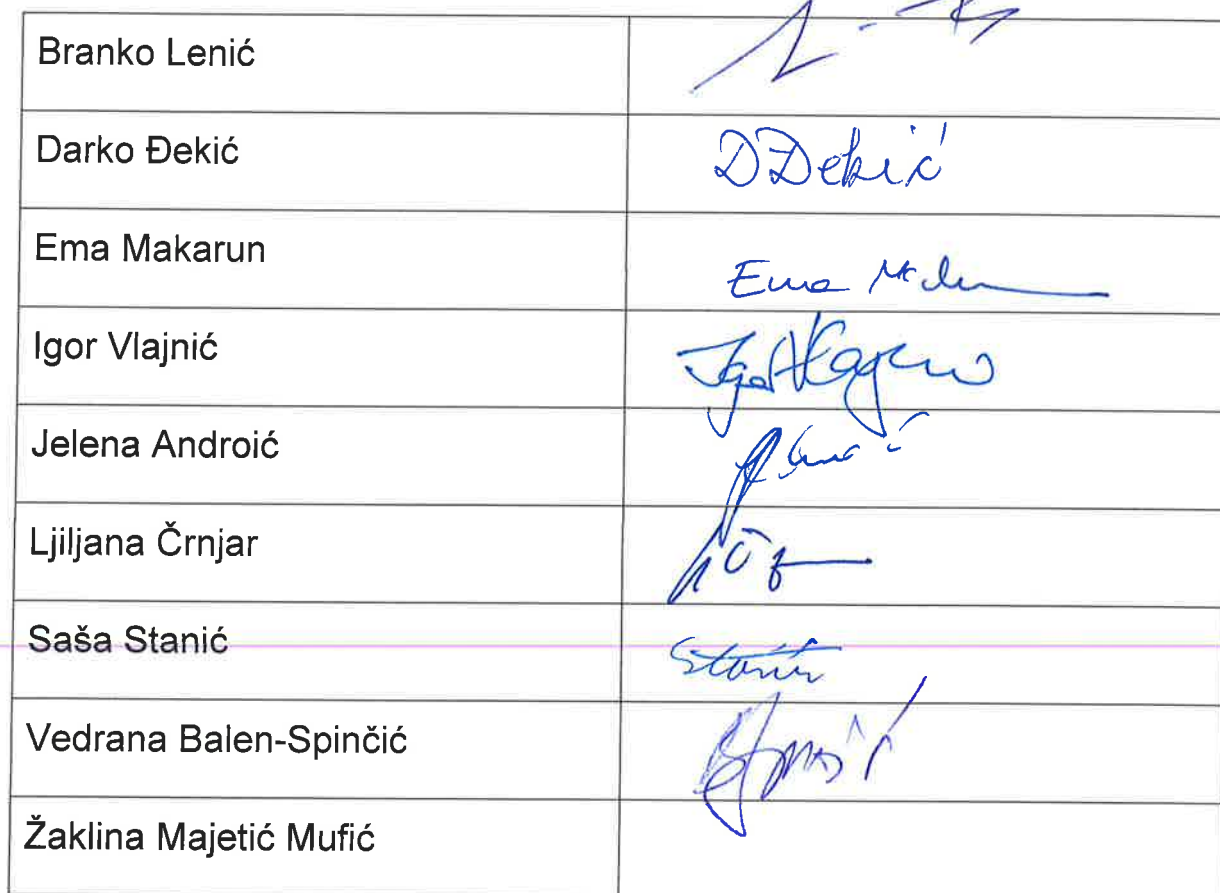 Branko Lenić
Darko Đekić DĐekić
Ema Makarun Ema
Igor Vlajnić Igor
Jelena Androić
Ljiljana Črnjar
Saša Stanić Stanić
Vedrana Balen-Spinčić
Žaklina Majetić Mufić